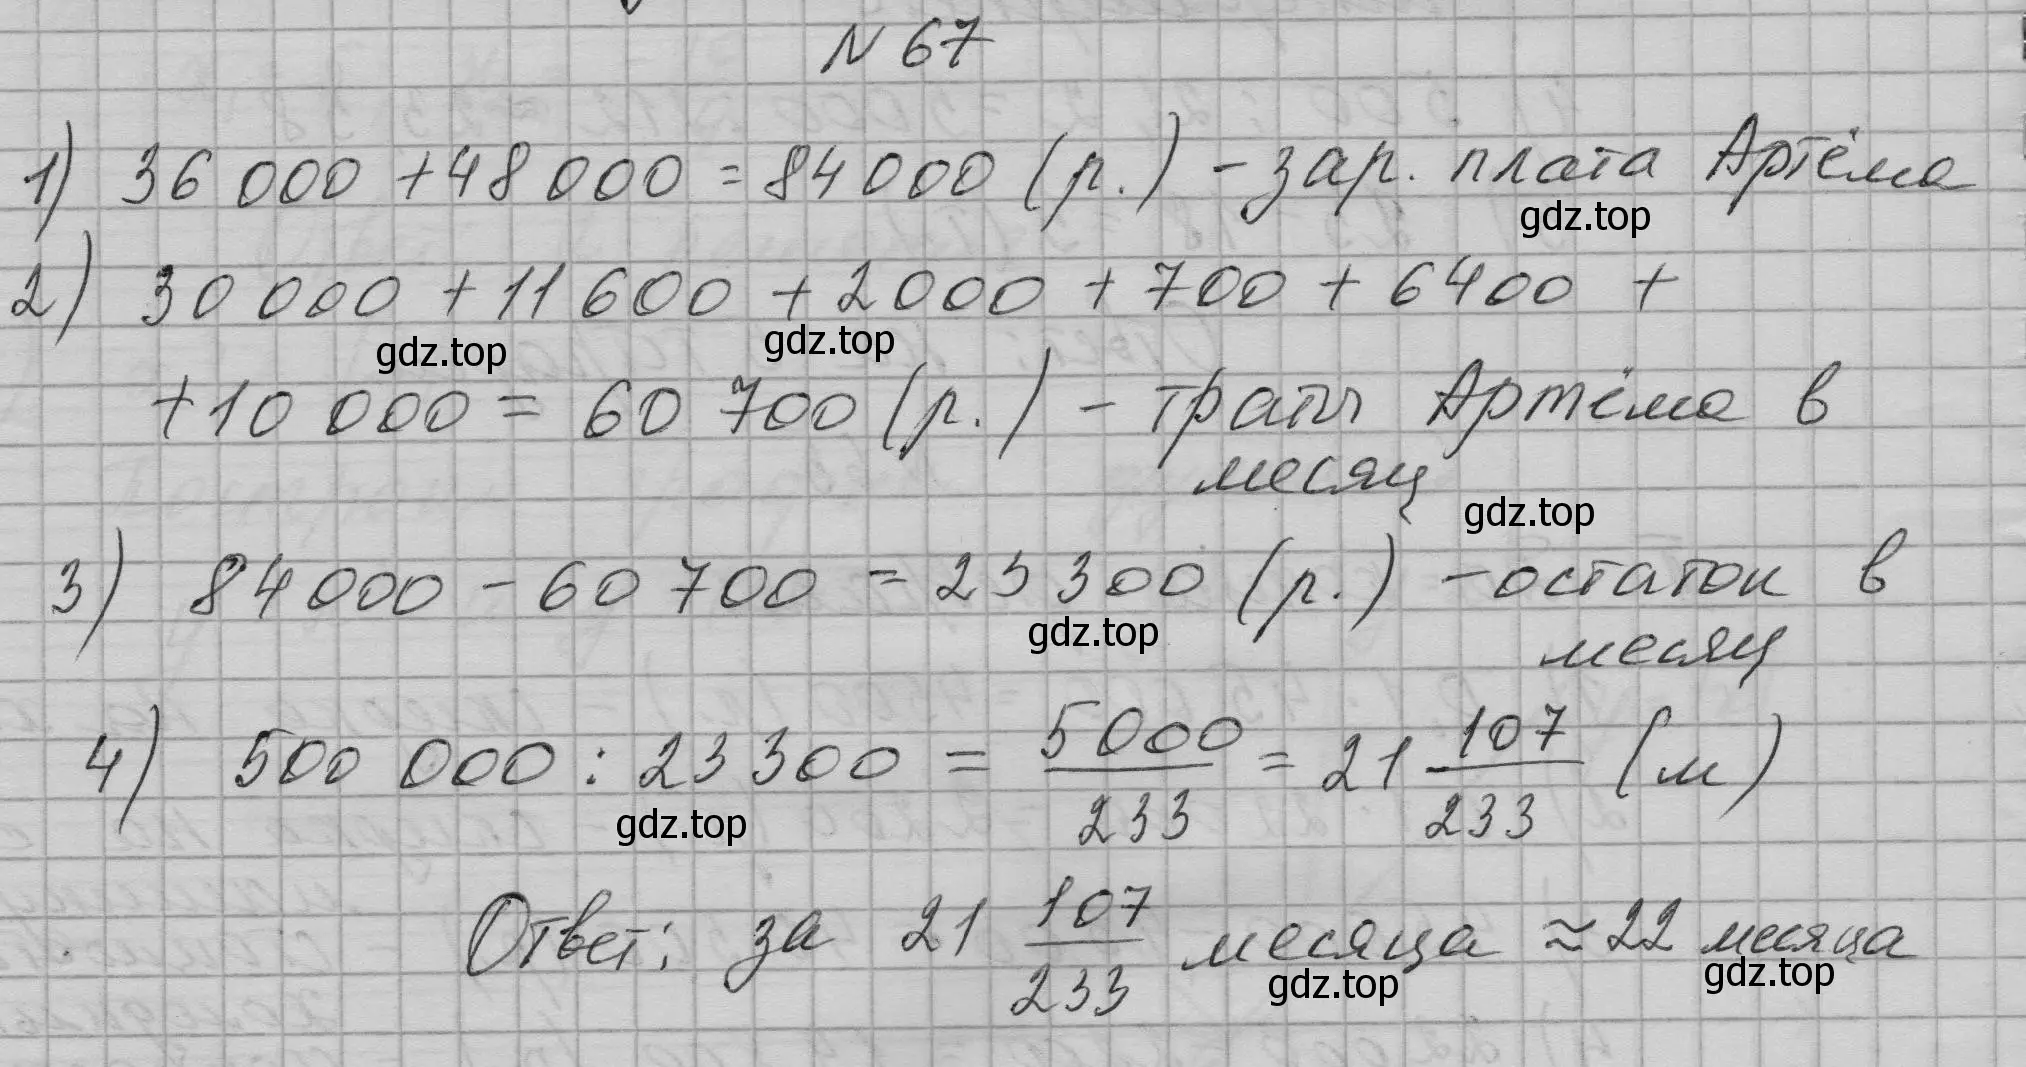 N 67
1) 36 000 + 48 000 = 84 000 (р.) - зар. плата Артёма
gdz.top
2) 30 000 + 11 600 + 2000 + 700 + 6400 +
gdz.top gdz.top
+ 10 000 = 60 700 (р.) - траты Артёма в
месяц
gdz.top
3) 84 000 - 60 700 = 23 300 (р.) - остаток в
gdz.top
месяц
4) 500 000 : 23 300 = 5000/233 = 21 107/233 (м)
gdz.top
Ответ: за 21 107/233 месяца ≈ 22 месяца
gdz.top gdz.top